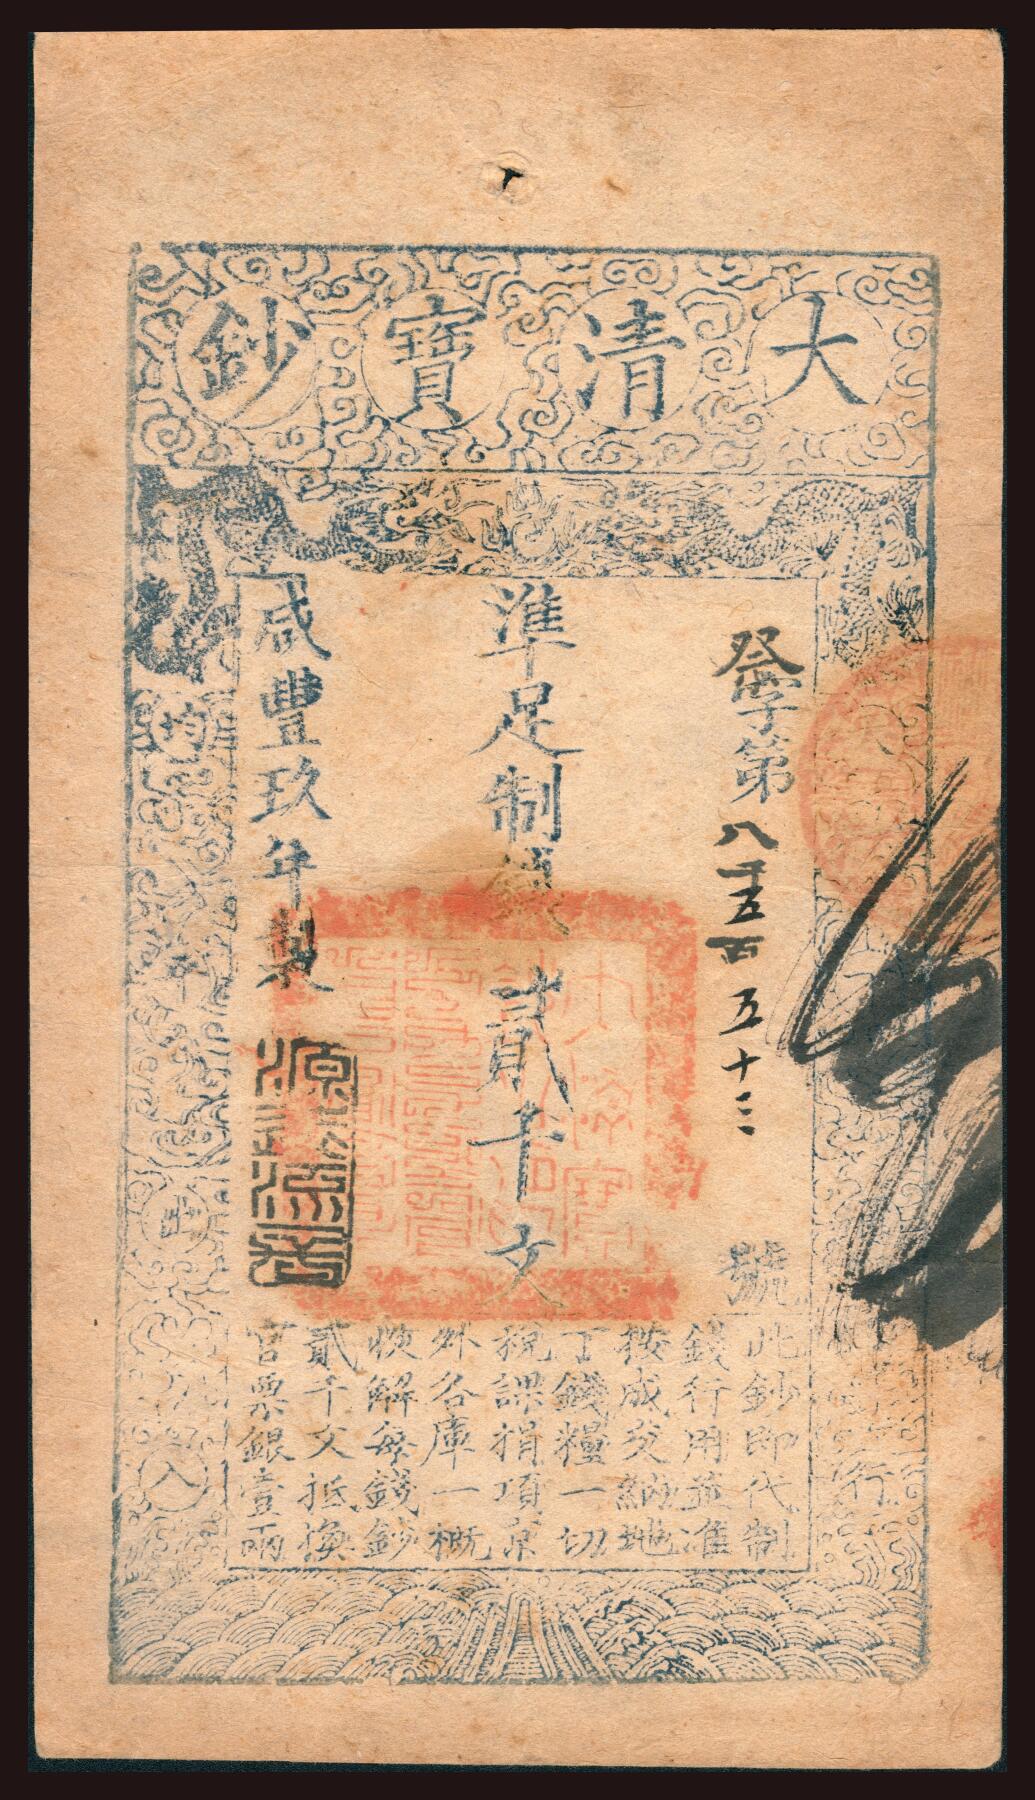 大清寶鈔
發字第八千五百五十三號
準足制錢貳千文
咸豐玖年製
此鈔即代制
錢行用並準
按成交納地
丁錢糧一切
稅課捐項京
外各庫一概
收解每錢鈔
貳千文抵換
官票銀壹兩
均
平
出
入
行